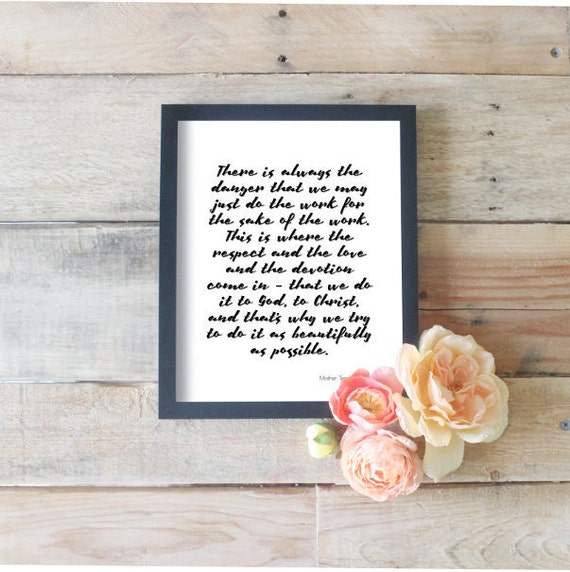 There is always the
danger that we may
just do the work for
the sake of the work.
This is where the
respect and the love
and the devotion
come in - that we do
it to God, to Christ,
and that's why we try
to do it as beautifully
as possible.
Mother